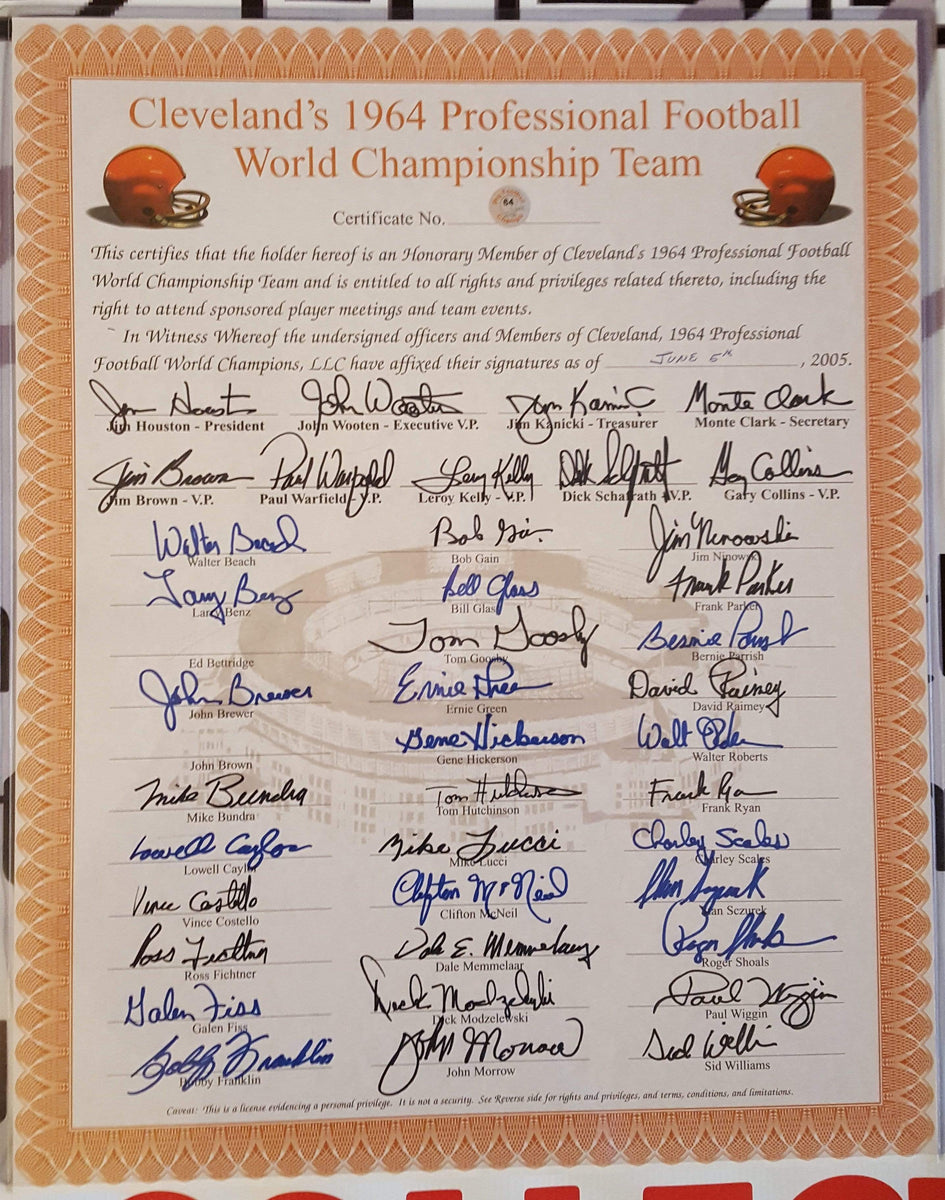 Cleveland's 1964 Professional Football
World Championship Team
Certificate No. 64
This certifies that the holder hereof is an Honorary Member of Cleveland's 1964 Professional Football
World Championship Team and is entitled to all rights and privileges related thereto, including the
right to attend sponsored player meetings and team events.
In Witness Whereof the undersigned officers and Members of Cleveland, 1964 Professional
Football World Champions, LLC have affixed their signatures as of JUNE 5TH, 2005.
Jim Houston John Wooten Jim Kanicki Monte Clark
Jim Houston - President John Wooten - Executive V.P. Jim Kanicki - Treasurer Monte Clark - Secretary
Jim Brown Paul Warfield Leroy Kelly Dick Schafrath Gary Collins
Jim Brown - V.P. Paul Warfield V.P. Leroy Kelly - V.P. Dick Schafrath V.P. Gary Collins - V.P.
Walter Beach Bob Gain Jim Ninowski
Walter Beach Bob Gain Jim Ninowski
Larry Benz Bill Glass Frank Parker
Larry Benz Bill Glass Frank Parker
Tom Goosby Bernie Parrish
Ed Bettridge Tom Goosby Bernie Parrish
John Brewer Ernie Green David Raimey
John Brewer Ernie Green David Raimey
Gene Hickerson Walt Roberts
John Brown Gene Hickerson Walter Roberts
Mike Bundra Tom Hutchinson Frank Ryan
Mike Bundra Tom Hutchinson Frank Ryan
Lowell Caylor Mike Lucci Charley Scales
Lowell Caylor Mike Lucci Charley Scales
Vince Costello Clifton McNeil Stan Sczurek
Vince Costello Clifton McNeil Stan Sczurek
Ross Fichtner Dale E. Memmelaar Roger Shoals
Ross Fichtner Dale Memmelaar Roger Shoals
Galen Fiss Dick Modzelewski Paul Wiggin
Galen Fiss Dick Modzelewski Paul Wiggin
Bobby Franklin John Morrow Sid Williams
Bobby Franklin John Morrow Sid Williams
Caveat: This is a license evidencing a personal privilege. It is not a security. See Reverse side for rights and privileges, and terms, conditions, and limitations.